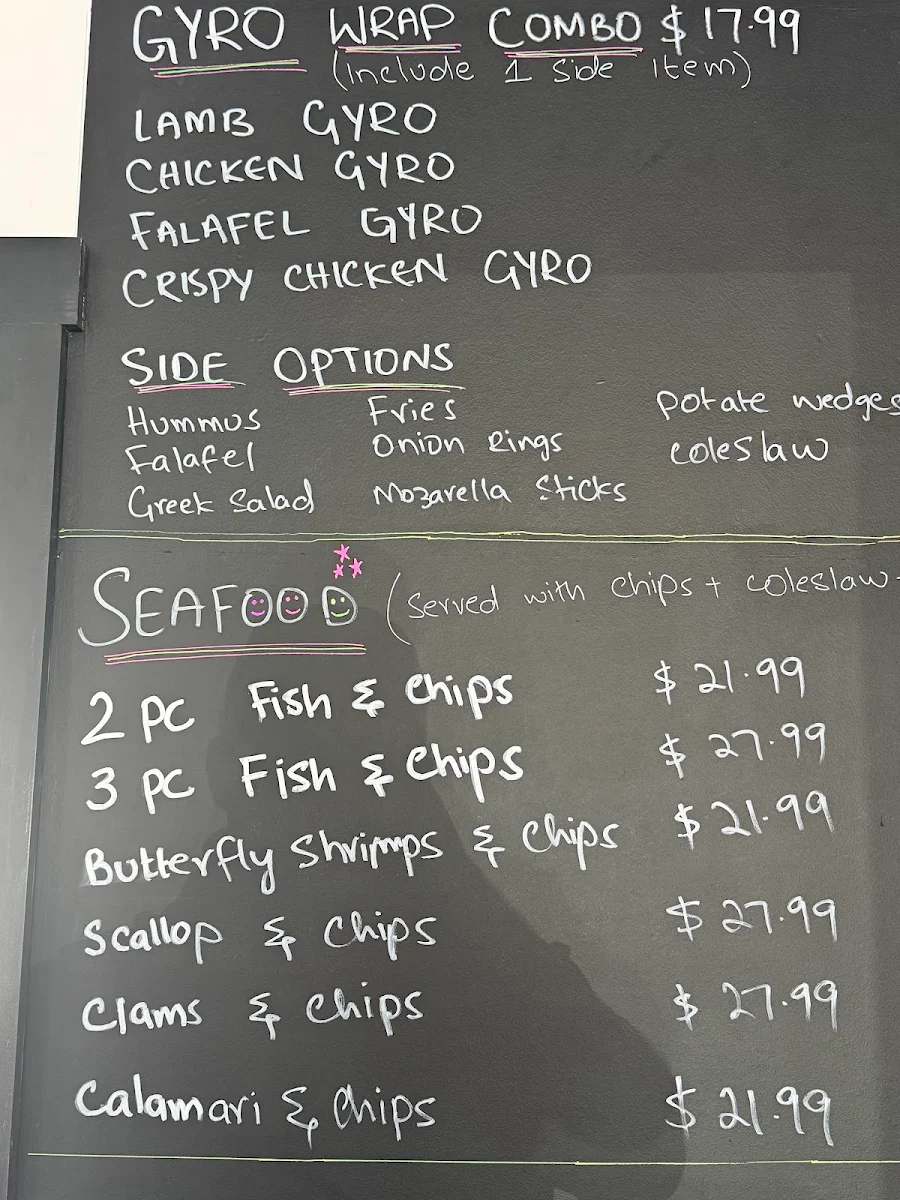 GYRO WRAP COMBO $ 17.99
(Include 1 side item)
LAMB GYRO
CHICKEN GYRO
FALAFEL GYRO
CRISPY CHICKEN GYRO
SIDE OPTIONS
Hummus Fries Potate wedges
Falafel Onion Rings coleslaw
Greek Salad Mozarella Sticks
SEAFOOD (Served with chips + coleslaw
2 PC Fish & Chips $ 21.99
3 PC Fish & Chips $ 27.99
Butterfly Shrimps & Chips $ 21.99
Scallop & Chips $ 27.99
Clams & Chips $ 27.99
Calamari & Chips $ 21.99